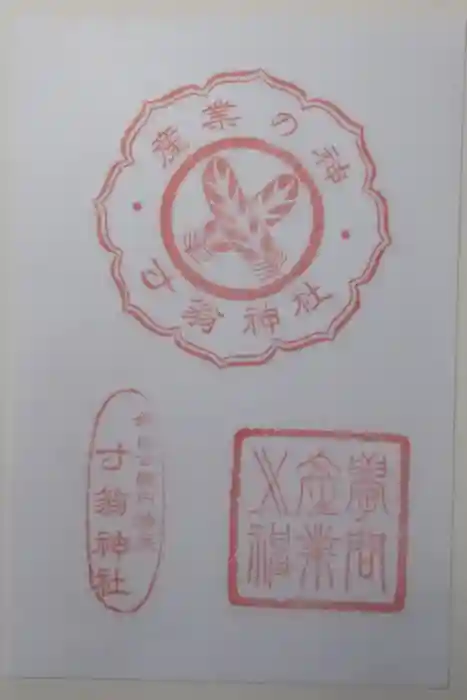 産業の神
寸翁神社
寸翁神社
學問
産業
之神